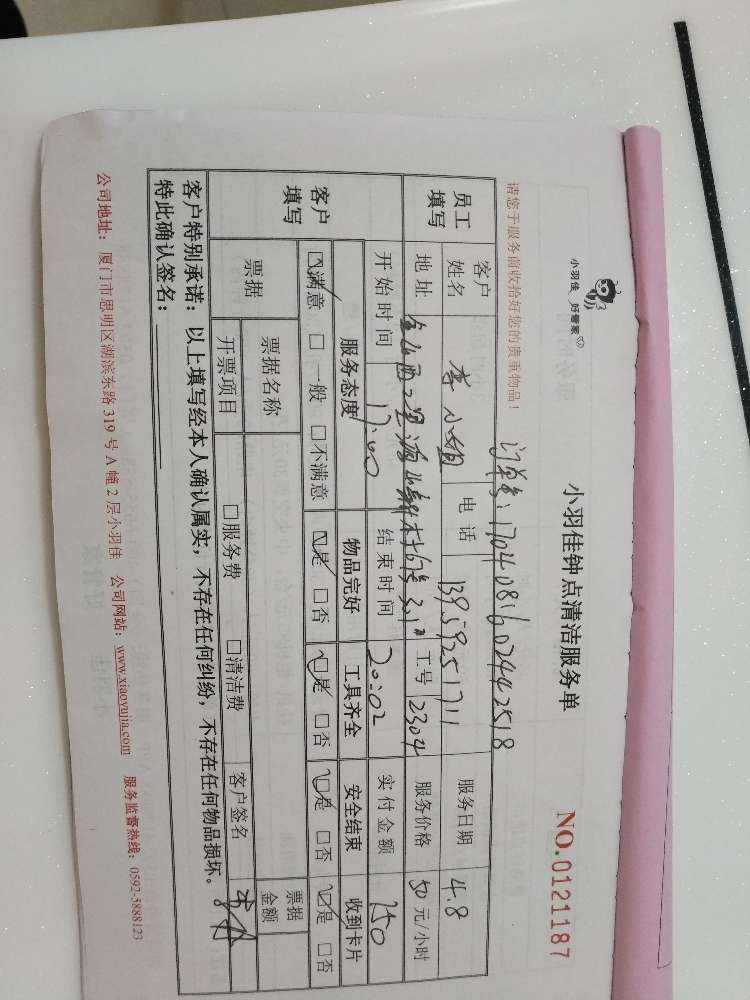 小羽佳 好管家
小羽佳钟点清洁服务单
NO.0121187
请您于服务前收拾好您的贵重物品！
订单号：17040816024442518
员工填写 客户姓名 李小姐 电话 13959251711 服务日期 4.8
地址 工号 2304 服务价格 50 元/小时
开始时间 17:00 结束时间 20:02 实付金额 150
客户填写 服务态度 物品完好 工具齐全 安全结束 收到卡片
☑满意 □一般 □不满意 ☑是 □否 ☑是 □否 ☑是 □否 ☑是 □否
票据 票据名称 票据金额
开票项目 □服务费 □清洁费 客户签名
客户特别承诺：以上填写经本人确认属实，不存在任何纠纷，不存在任何物品损坏。
特此确认签名：
公司地址：厦门市思明区湖滨东路 319 号 A 幢 2 层小羽佳 公司网站：www.xiaoyujia.com 服务监督热线：0592-5888123